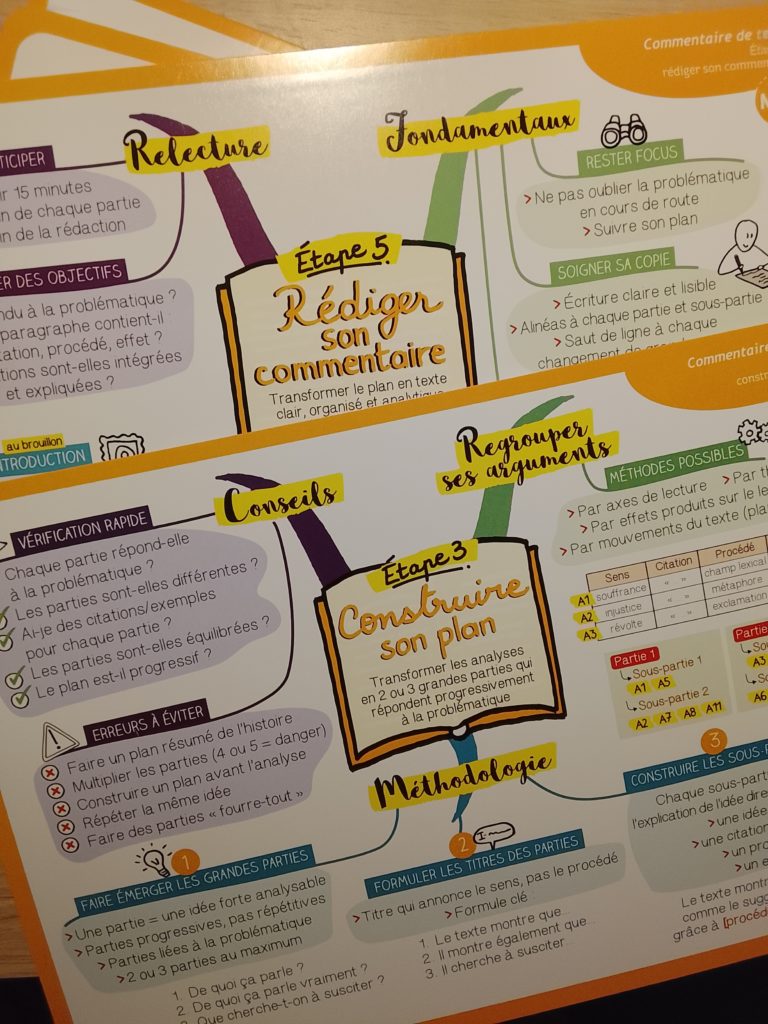 Commentaire de
rédiger son
Relecture
Fondamentaux
15 minutes
de chaque partie
de la rédaction
DES OBJECTIFS
à la problématique ?
paragraphe contient-il
procédé, effet ?
sont-elles intégrées
et expliquées ?
au brouillon
INTRODUCTION
Étape 5
Rédiger
son
commentaire
Transformer le plan en texte
clair, organisé et analytique
RESTER FOCUS
> Ne pas oublier la problématique
en cours de route
> Suivre son plan
SOIGNER SA COPIE
> Écriture claire et lisible
> Alinéas à chaque partie et sous-partie
> Saut de ligne à chaque
changement de
Commentaire
Conseils
Regrouper
ses arguments
VÉRIFICATION RAPIDE
Chaque partie répond-elle
à la problématique ?
Les parties sont-elles différentes ?
Ai-je des citations/exemples
pour chaque partie ?
Les parties sont-elles équilibrées ?
Le plan est-il progressif ?
ERREURS À ÉVITER
Faire un plan résumé de l'histoire
Multiplier les parties (4 ou 5 = danger)
Construire un plan avant l'analyse
Répéter la même idée
Faire des parties « fourre-tout »
Étape 3
Construire
son plan
Transformer les analyses
en 2 ou 3 grandes parties qui
répondent progressivement
à la problématique
MÉTHODES POSSIBLES
> Par axes de lecture > Par
> Par effets produits sur le
> Par mouvements du texte
Sens Citation Procédé
A1 souffrance " " champ lexical
A2 injustice " " métaphore
A3 révolte " " exclamation
Partie 1
Sous-partie 1
A1 A5
Sous-partie 2
A2 A7 A8 A11
A3
A6
Méthodologie
1
FAIRE ÉMERGER LES GRANDES PARTIES
> Une partie = une idée forte analysable
> Parties progressives, pas répétitives
> Parties liées à la problématique
> 2 ou 3 parties au maximum
1. De quoi ça parle ?
2. De quoi ça parle vraiment ?
3. Que cherche-t-on à susciter ?
2
FORMULER LES TITRES DES PARTIES
> Titre qui annonce le sens, pas le procédé
> Formule clé :
1. Le texte montre que...
2. Il montre également que...
3. Il cherche à susciter...
3
CONSTRUIRE LES
Chaque
l'explication de l'idée
> une
> une
> un
> un
Le texte
comme le
grâce à